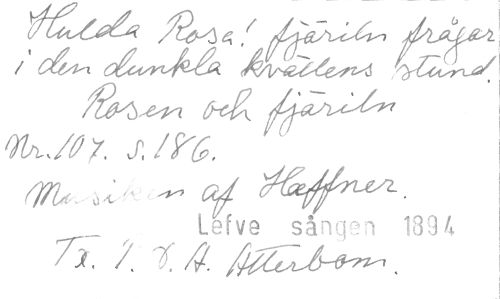 Hulda Rosa! fjäriln frågar
i den dunkla kvällens stund.
Rosen och fjäriln
Nr. 107. s. 186.
Musiken af Hæffner.
Lefve sången 1894
Tx. P. D. A. Atterbom.